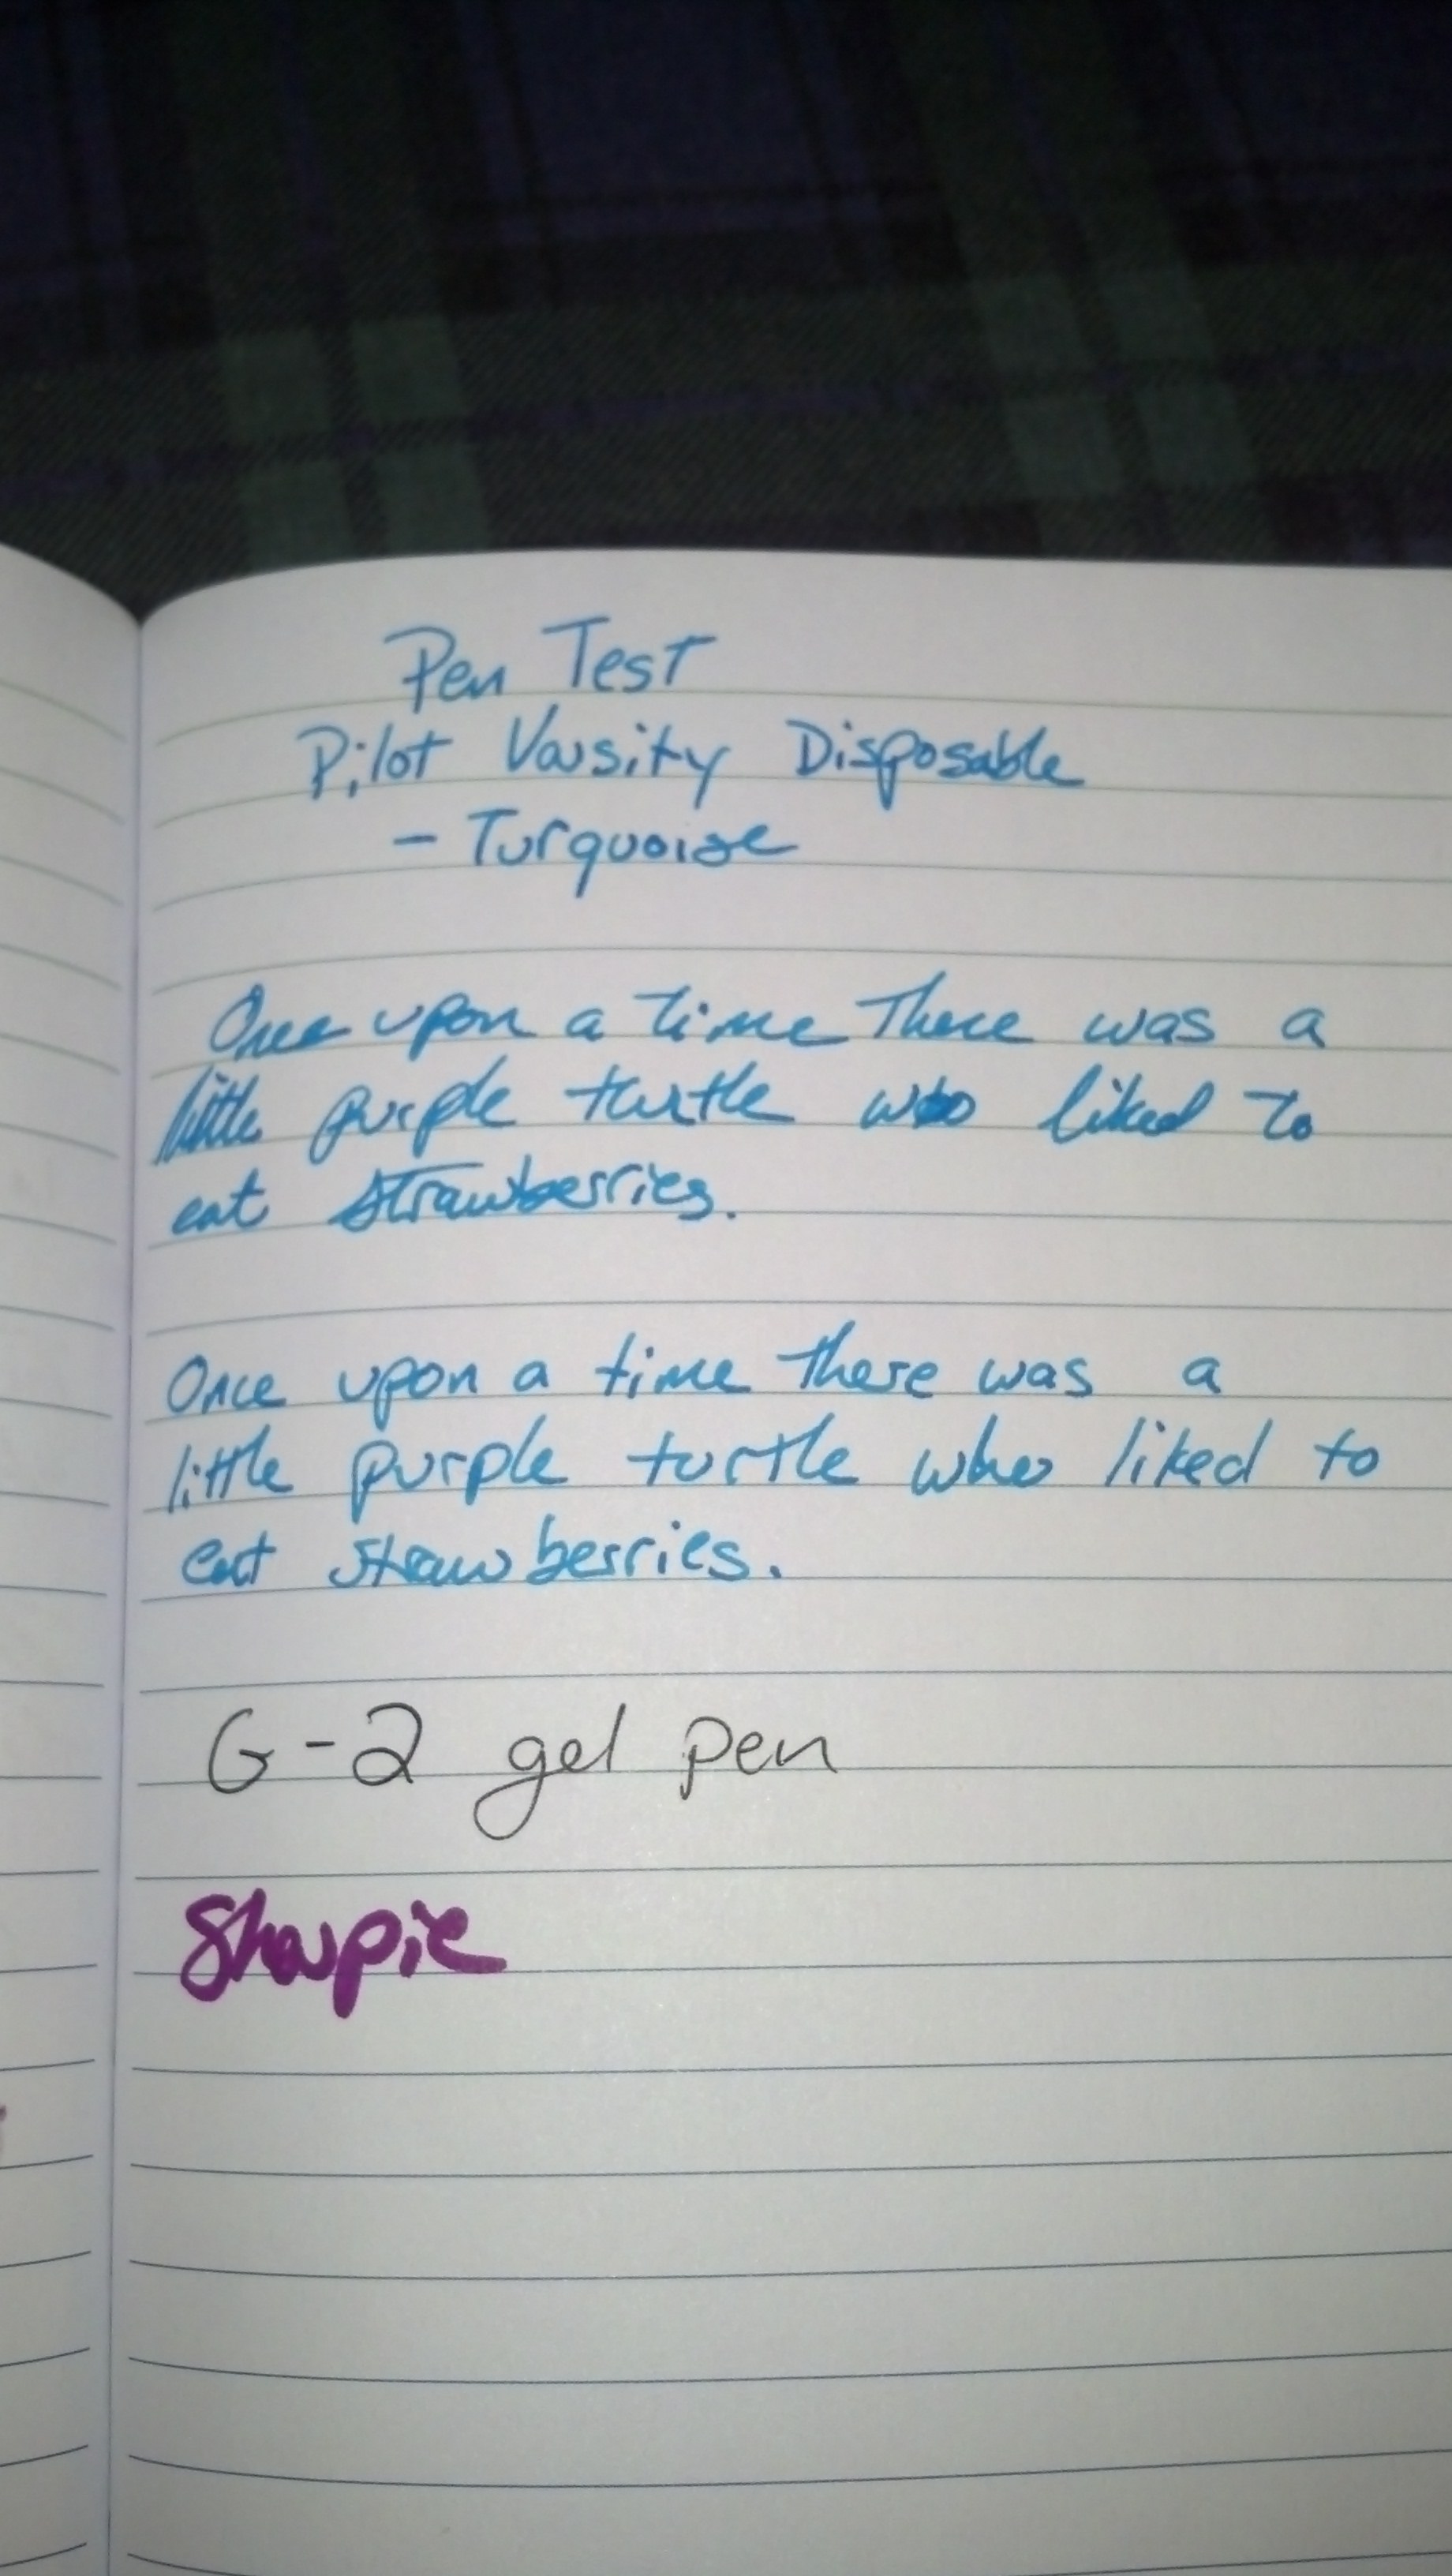 Pen Test
Pilot Varsity Disposable
- Turquoise
Once upon a time There was a
little purple turtle who liked to
eat strawberries.
Once upon a time there was a
little purple turtle who liked to
eat strawberries.
G-2 gel pen
Sharpie